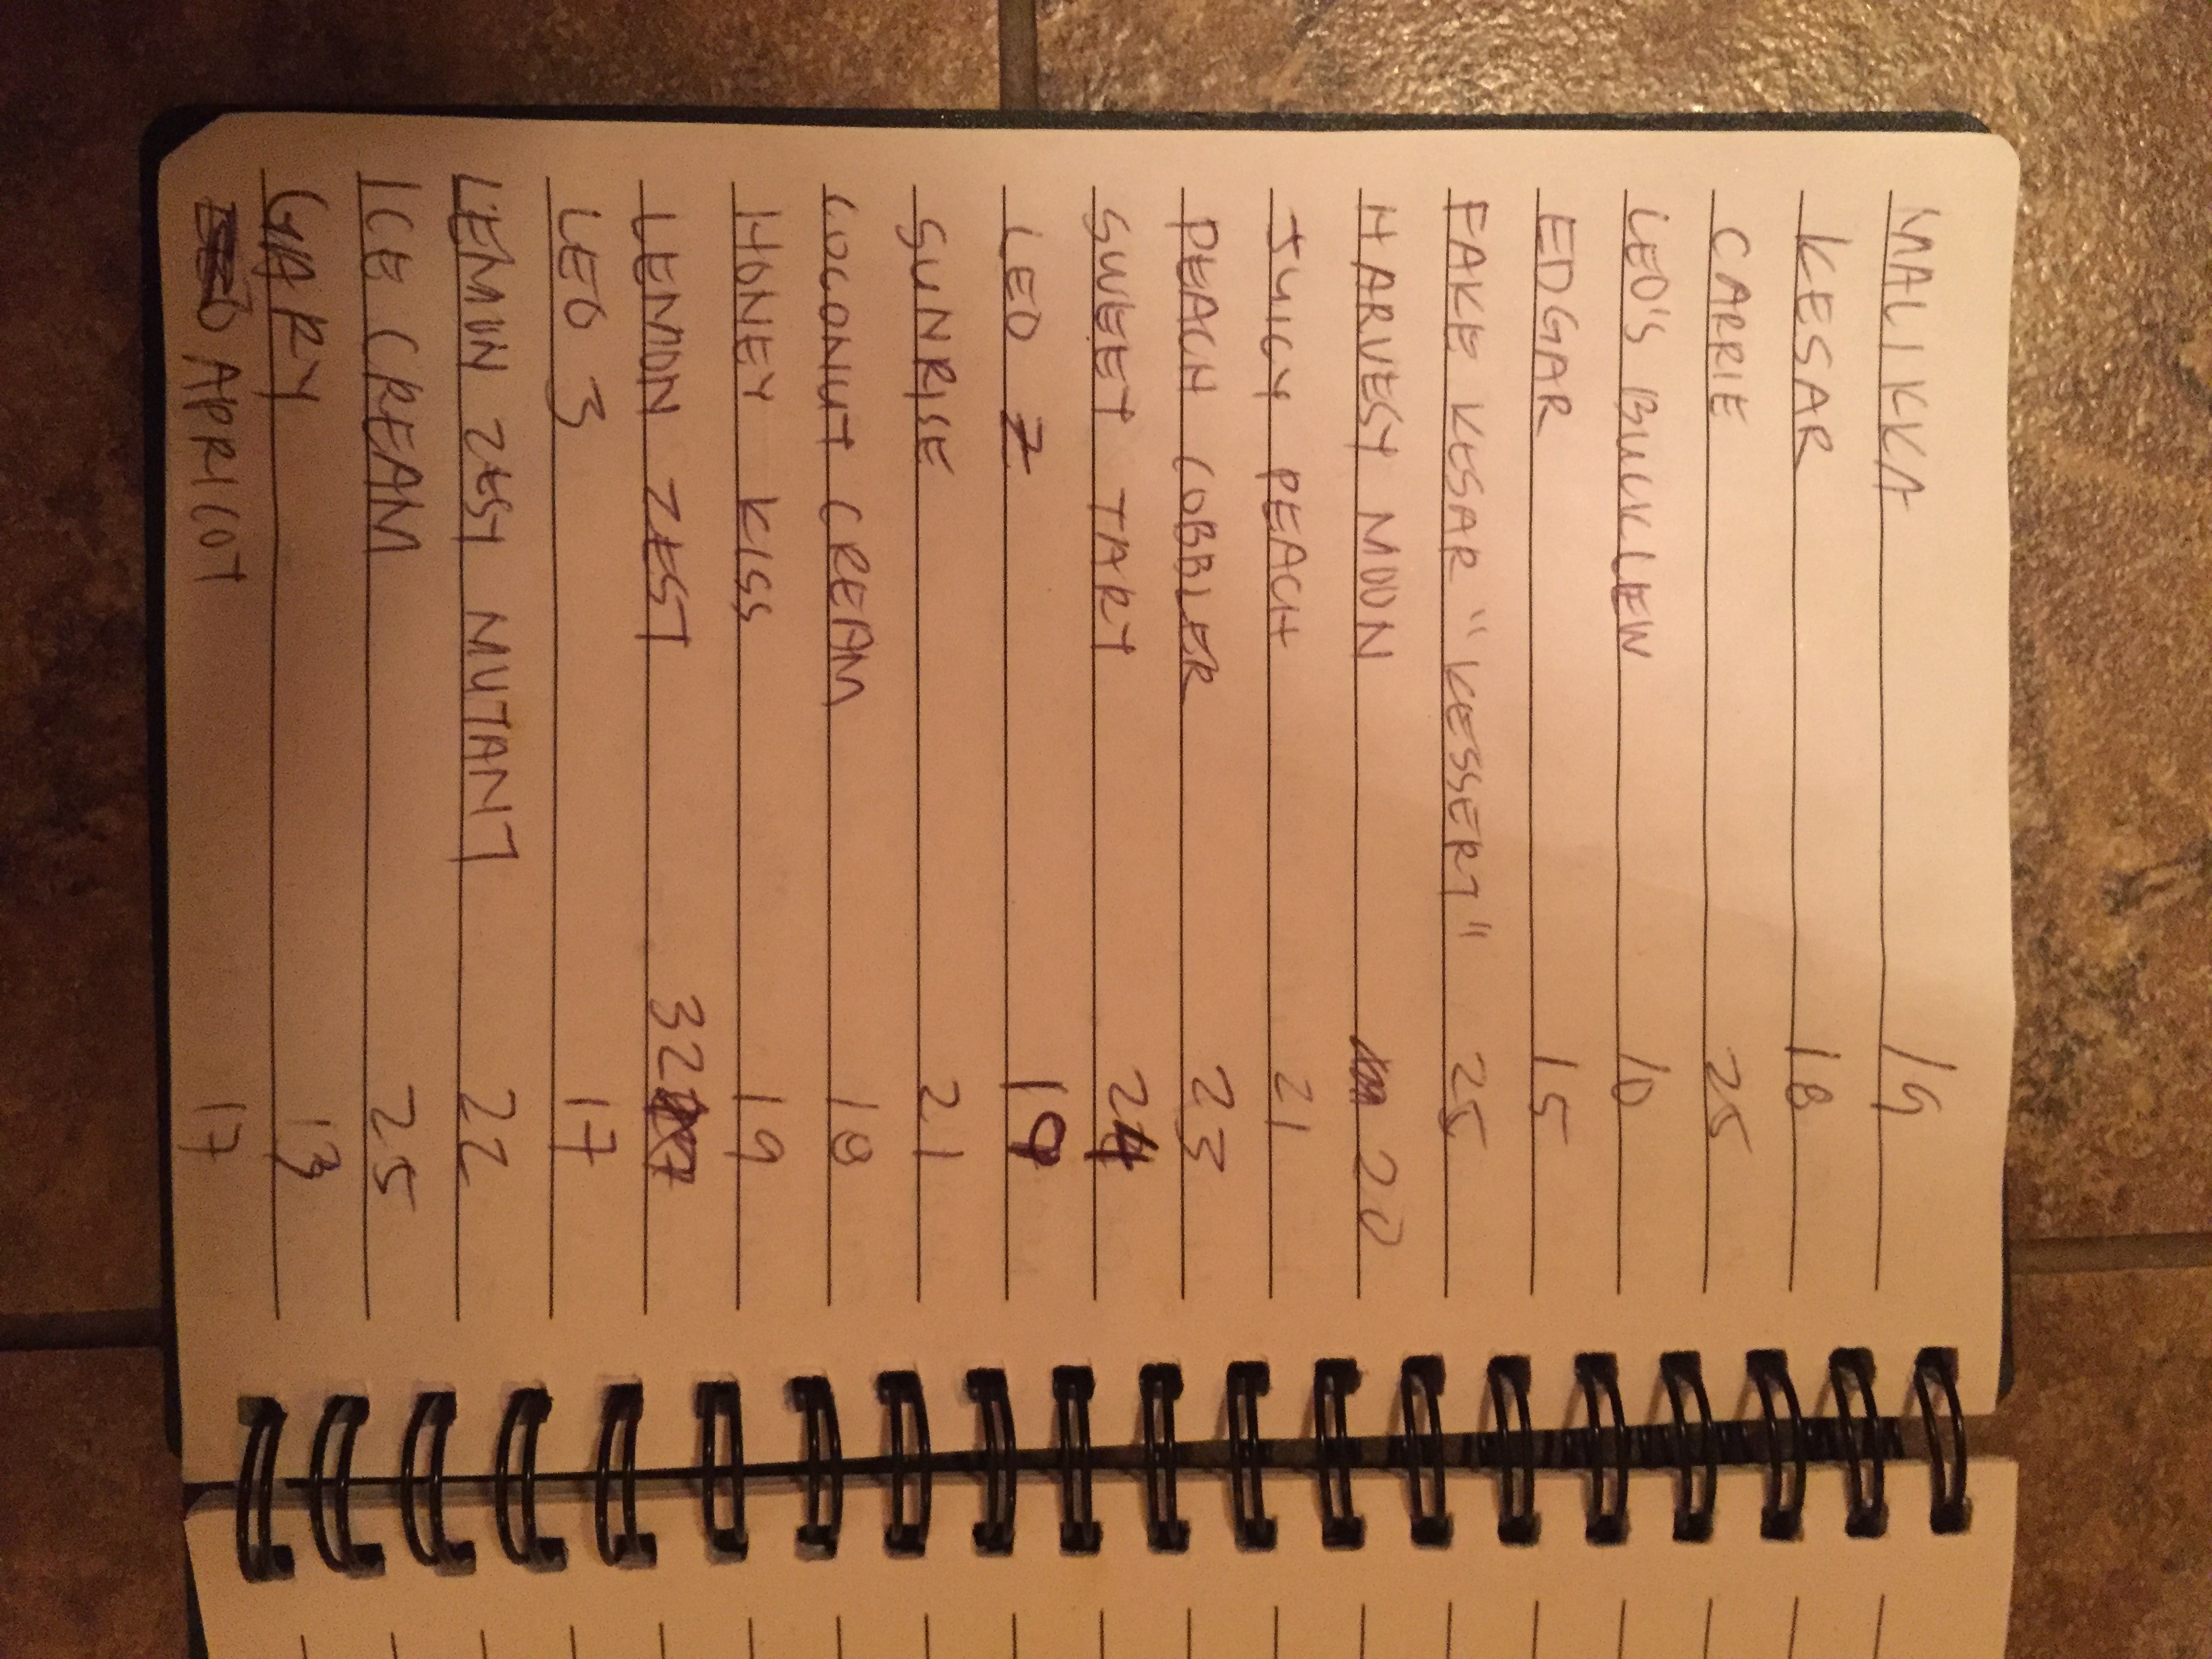 MALIKKA 19
KESAR 18
CARRIE 25
LEO'S BUCKLEW 10
EDGAR 15
FAKE KESAR "KESSERT" 25
HARVEST MOON 20
JUICY PEACH 21
PEACH COBBLER 23
SWEET TART 24
LEO 2 19
SUNRISE 21
COCONUT CREAM 18
HONEY KISS 19
LEMON ZEST 32
LEO 3 17
LEMON ZEST MUTANT 22
ICE CREAM 25
GARY 13
APRICOT 17